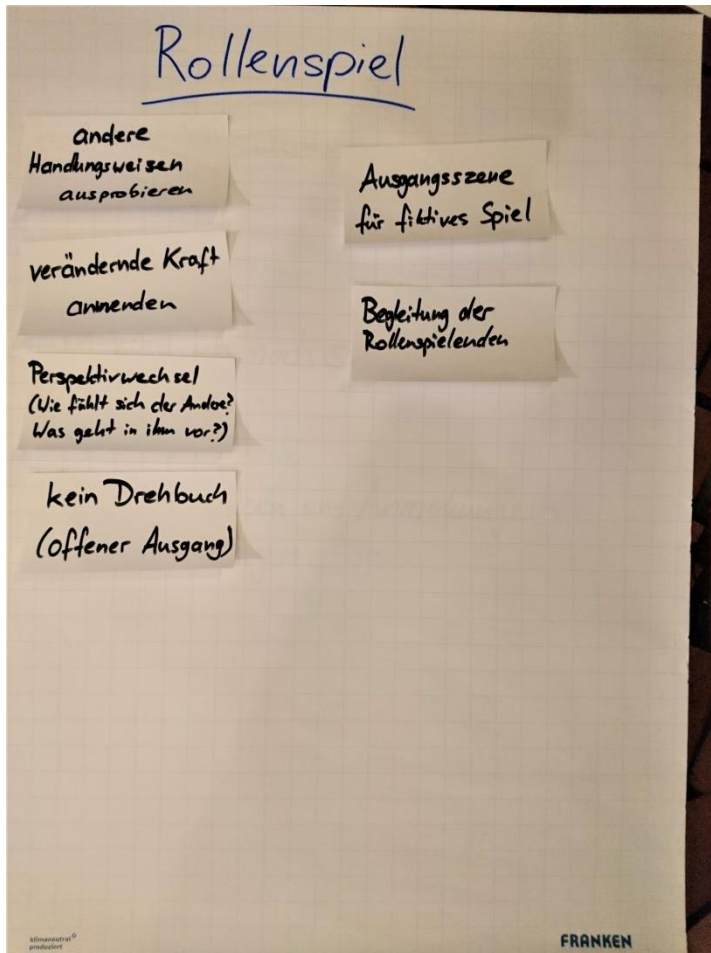 Rollenspiel
andere
Handlungsweisen
ausprobieren
verändernde Kraft
anwenden
Perspektivwechsel
(Wie fühlt sich der Andere?
Was geht in ihm vor?)
kein Drehbuch
(offener Ausgang)
Ausgangsszene
für fiktives Spiel
Begleitung der
Rollenspielenden
klimaneutral
produziert
FRANKEN